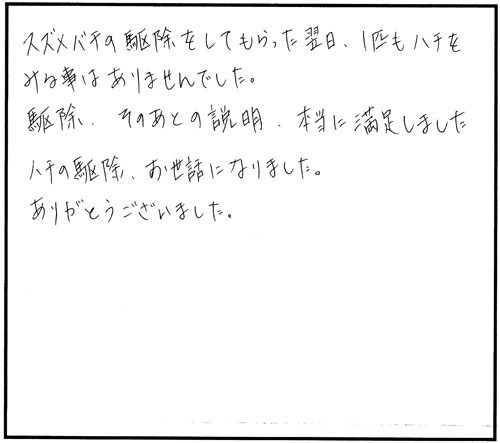 スズメバチの駆除をしてもらった翌日、1匹もハチを
みる事はありませんでした。
駆除、そのあとの説明、本当に満足しました
ハチの駆除、お世話になりました。
ありがとうございました。